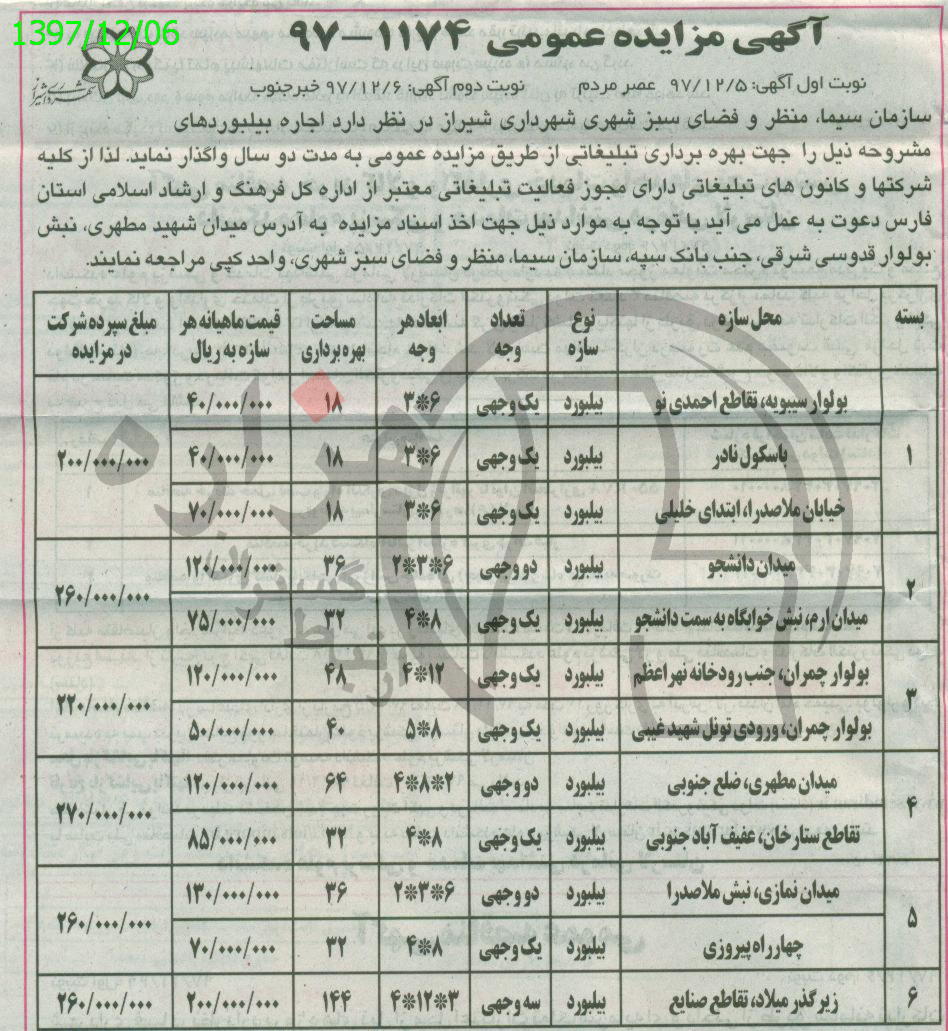 1397/12/06
آگهی مزایده عمومی ۱۱۷۴-۹۷
شهرداری شیراز
نوبت اول آگهی: ۹۷/۱۲/۵ عصر مردم نوبت دوم آگهی: ۹۷/۱۲/۶ خبرجنوب
سازمان سیما، منظر و فضای سبز شهری شهرداری شیراز در نظر دارد اجاره بیلبوردهای
مشروحه ذیل را جهت بهره برداری تبلیغاتی از طریق مزایده عمومی به مدت دو سال واگذار نماید. لذا از کلیه
شرکتها و کانون های تبلیغاتی دارای مجوز فعالیت تبلیغاتی معتبر از اداره کل فرهنگ و ارشاد اسلامی استان
فارس دعوت به عمل می آید با توجه به موارد ذیل جهت اخذ اسناد مزایده به آدرس میدان شهید مطهری، نبش
بولوار قدوسی شرقی، جنب بانک سپه، سازمان سیما، منظر و فضای سبز شهری، واحد کپی مراجعه نمایند.
بسته محل سازه نوع سازه تعداد وجه ابعاد هر وجه مساحت بهره برداری قیمت ماهیانه هر سازه به ریال مبلغ سپرده شرکت در مزایده
۱ بولوار سیبویه، تقاطع احمدی نو بیلبورد یک وجهی ۶*۳ ۱۸ ۴۰/۰۰۰/۰۰۰ ۲۰۰/۰۰۰/۰۰۰
باسکول نادر بیلبورد یک وجهی ۶*۳ ۱۸ ۴۰/۰۰۰/۰۰۰
خیابان ملاصدرا، ابتدای خلیلی بیلبورد یک وجهی ۶*۳ ۱۸ ۷۰/۰۰۰/۰۰۰
۲ میدان دانشجو بیلبورد دو وجهی ۶*۳*۲ ۳۶ ۱۲۰/۰۰۰/۰۰۰ ۲۶۰/۰۰۰/۰۰۰
میدان ارم، نبش خوابگاه به سمت دانشجو بیلبورد یک وجهی ۸*۴ ۳۲ ۷۵/۰۰۰/۰۰۰
۳ بولوار چمران، جنب رودخانه نهر اعظم بیلبورد یک وجهی ۱۲*۴ ۴۸ ۱۲۰/۰۰۰/۰۰۰ ۲۲۰/۰۰۰/۰۰۰
بولوار چمران، ورودی تونل شهید غیبی بیلبورد یک وجهی ۸*۵ ۴۰ ۵۰/۰۰۰/۰۰۰
۴ میدان مطهری، ضلع جنوبی بیلبورد دو وجهی ۲*۸*۴ ۶۴ ۱۲۰/۰۰۰/۰۰۰ ۲۷۰/۰۰۰/۰۰۰
تقاطع ستارخان، عفیف آباد جنوبی بیلبورد یک وجهی ۸*۴ ۳۲ ۸۵/۰۰۰/۰۰۰
۵ میدان نمازی، نبش ملاصدرا بیلبورد دو وجهی ۶*۳*۲ ۳۶ ۱۳۰/۰۰۰/۰۰۰ ۲۶۰/۰۰۰/۰۰۰
چهارراه پیروزی بیلبورد یک وجهی ۸*۴ ۳۲ ۷۰/۰۰۰/۰۰۰
۶ زیر گذر میلاد، تقاطع صنایع بیلبورد سه وجهی ۳*۱۲*۴ ۱۴۴ ۲۰۰/۰۰۰/۰۰۰ ۲۶۰/۰۰۰/۰۰۰